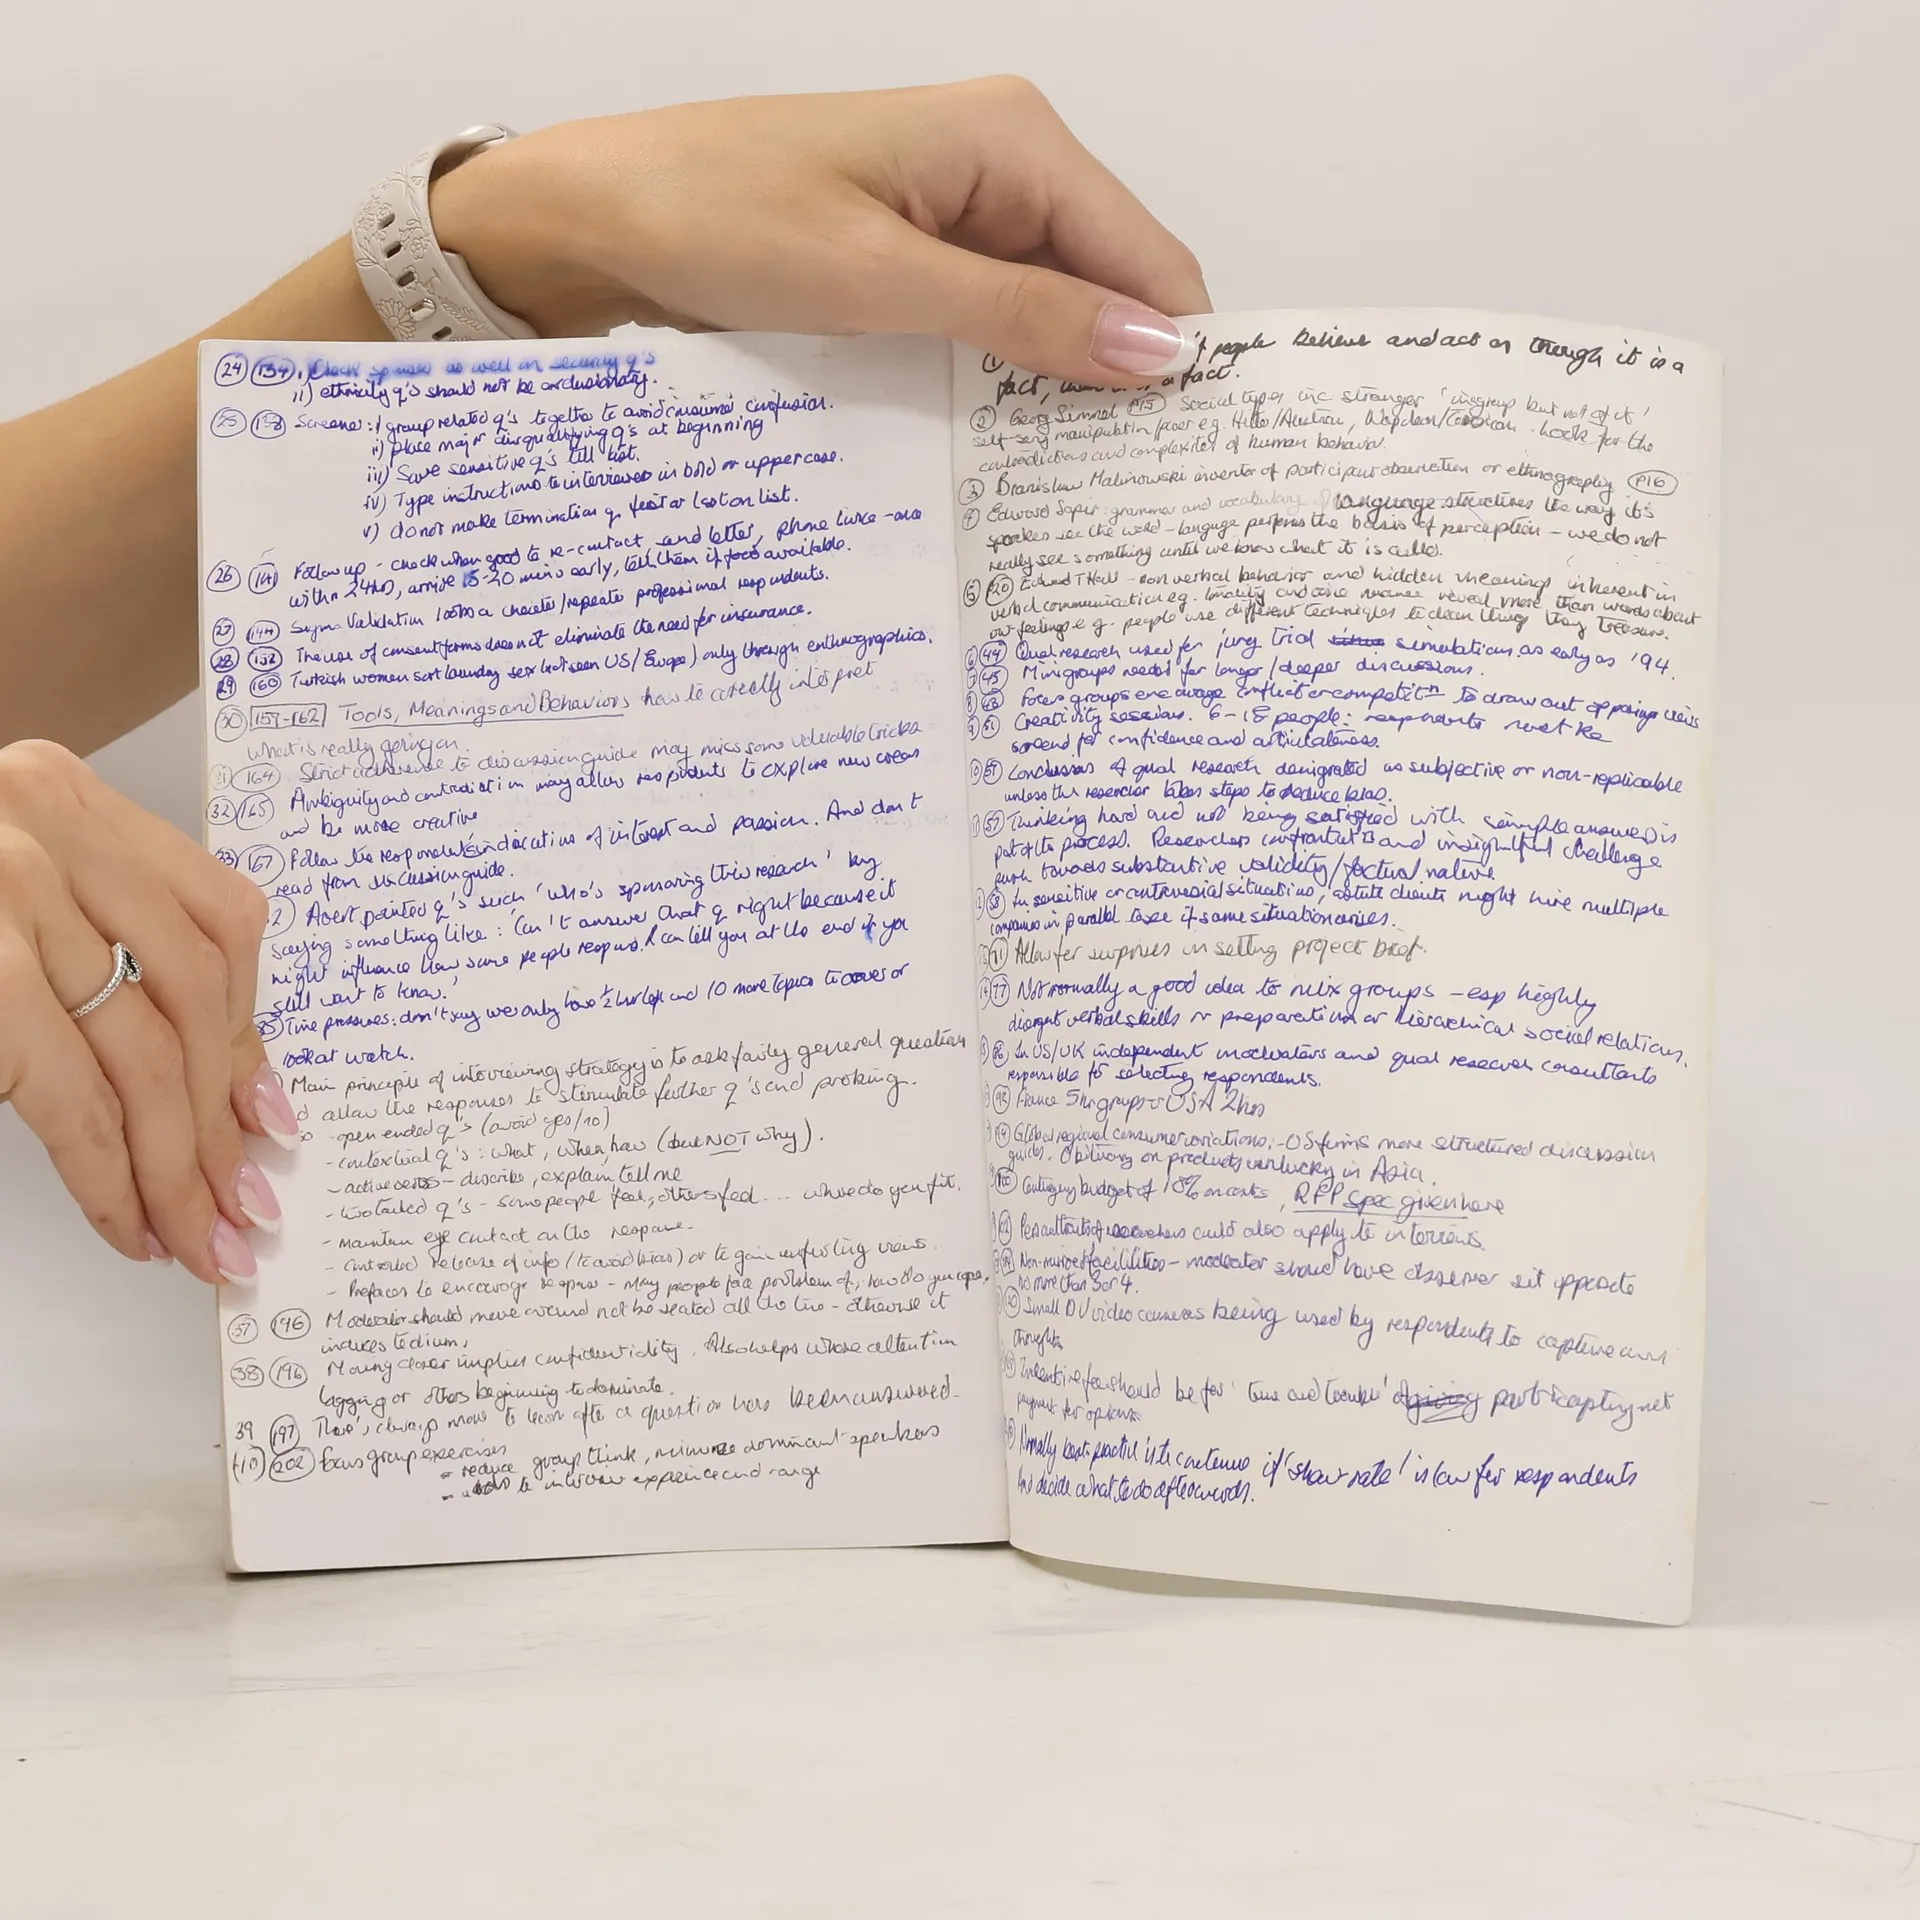 24 134 i) Check spouses as well on security q's
ii) ethnicity q's should not be exclusionary.
25 138 Screener: i) group related q's together to avoid consumer confusion.
ii) place major disqualifying q's at beginning
iii) Save sensitive q's till last.
iv) Type instructions to interviewer in bold or uppercase.
v) do not make termination q first or last on list.
26 141 Follow up - check when good to re-contact, send letter, phone twice - once
within 24hrs, arrive 15-20 mins early, tell them if food available.
27 144 Sigma Validation looks a cheater/repeater professional respondents.
28 152 The use of consent forms does not eliminate the need for insurance.
29 160 Turkish women sort laundry sex (not seen US/Europe) only through enthnographics.
30 159-162 Tools, Meanings and Behaviors how to correctly interpret
what is really going on.
31 164 Strict adherence to discussion guide may miss some valuable
32 165 Ambiguity and contradiction may allow respondents to explore new areas
and be more creative
33 167 Follow the respondent's indications of interest and passion. And don't
read from discussion guide.
2 Avert pointed q's such 'who's sponsoring this research' by
saying something like: 'Can't answer that q right because it
might influence how some people respond. I can tell you at the end if you
still want to know.'
35 Time pressures: don't say we only have ½ hr left and 10 more topics to cover or
look at watch.
Main principle of interviewing strategy is to ask fairly general question
allow the responses to stimulate further q's and probing.
- open ended q's (avoid yes/no)
- contextual q's: what, when, how (but NOT why).
- active verbs - describe, explain, tell me
- two tailed q's - some people feel, others feel ... where do you fit.
- maintain eye contact on the response.
- controlled release of info (to avoid bias) or to gain conflicting views.
- Prefaces to encourage response - many people face problem of, how do you cope.
37 196 Moderator should move around not be seated all the time - otherwise it
induces tedium.
38 196 Moving closer implies confidentiality. Also helps where attention
lagging or others beginning to dominate.
39 197 There's always more to learn after a question has been answered.
40 202 focus group exercises
- reduce group think, minimize dominant speakers
- to interview experience and range
1 if people believe and act as though it is a
fact, a fact.
2 Georg Simmel P15 Social types inc stranger 'ingroup but not of it'
self-serv manipulation/power e.g. Hitler/Austrian, Napoleon/Corsican. Look for the
contradictions and complexities of human behavior.
3 Branislaw Malinowski inventor of participant observation or ethnography P16
4 Edward Sapir: grammar and vocabulary of language structures the way it's
speakers see the world - language performs the basis of perception - we do not
really see something until we know what it is called.
5 P20 Edward T Hall - non verbal behavior and hidden meanings inherent in
verbal communication eg. tonality and voice nuance reveal more than words about
our feelings e.g. people use different techniques to clean things they treasure.
6 44 Qual research used for jury trial simulations as early as '94.
7 45 Minigroups needed for longer/deeper discussions.
8 48 Focus groups encourage conflict or competitn to draw out opposing views
9 51 Creativity sessions. 6-18 people: respondents must be
screened for confidence and articulateness.
10 57 Conclusions of qual research denigrated as subjective or non-replicable
unless the researcher takes steps to reduce bias.
57 Thinking hard and not being satisfied with simple answers is
part of the process. Researchers confrontat'n and insightful challenge
push towards substantive validity/factual nature
58 In sensitive or controversial situations, astute clients might hire multiple
companies in parallel to see if same situation arises.
71 Allow for surprises in setting project brief.
14 77 Not normally a good idea to mix groups - esp highly
divergent verbal skills or preparation or hierarchical social relations.
In US/UK independent moderators and qual research consultants
responsible for selecting respondents.
98 France 5hr groups v USA 2hrs
Global regional consumer variations: - US firms more structured discussion
guides. Obituary on products unlucky in Asia.
100 Contingency budget of 10% on costs, RFP spec given here
Personal traits of researchers could also apply to interviews.
Non-mirrored facilities - moderator should have observer sit opposite
no more than 3 or 4.
Small DV video cameras being used by respondents to capture own
thoughts
Incentive fee should be for 'time and trouble' of giving participating not
payment for opinions
Normally best-practice is to continue if 'show rate' is low for respondents
and decide what to do afterwards.